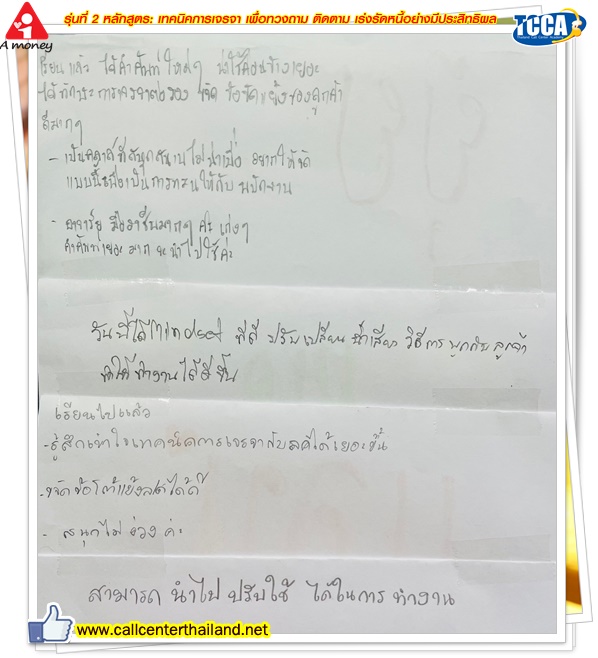 รุ่นที่ 2 หลักสูตร: เทคนิคการเจรจา เพื่อทวงถาม ติดตาม เร่งรัดหนี้อย่างมีประสิทธิผล
A money
TCCA
เรียนแล้ว ได้คำศัพท์ใหม่ๆ ค่อนข้างเยอะ
ได้ทักษะการเจรจาต่อรอง ขจัด ข้อขัดแย้งของลูกค้า
ดีมากๆ
- เป็นคลาสที่สนุกสนานไม่น่าเบื่อ อยากให้จัด
แบบนี้เพื่อเป็นการเทรนให้กับ พนักงาน
- อาจารย์ มืออาชีพมากๆ ค่ะ เก่งๆ
คำศัพท์เยอะมาก จะนำไปใช้ค่ะ
วันนี้ได้ Mindset ที่ดี ปรับเปลี่ยน น้ำเสียง วิธีการ พูดกับลูกค้า
ทำให้ทำงานได้ดีขึ้น
เรียนไปแล้ว
- รู้สึกเข้าใจเทคนิคการเจรจากับลค.ได้เยอะขึ้น
- ขจัดข้อโต้แย้งลค.ได้ดี
- สนุกไม่ง่วง ค่ะ
สามารถ นำไป ปรับใช้ ได้ในการ ทำงาน
www.callcenterthailand.net